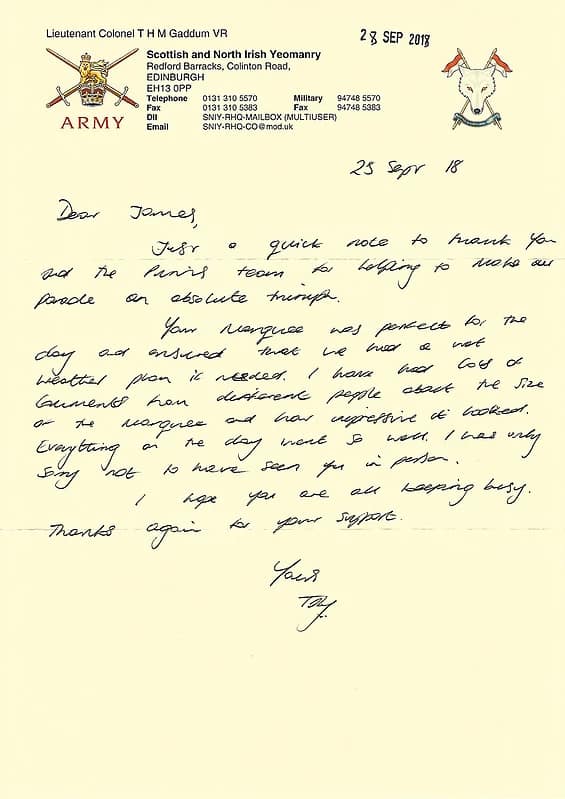 Lieutenant Colonel T H M Gaddum VR
28 SEP 2018
Scottish and North Irish Yeomanry
Redford Barracks, Colinton Road,
EDINBURGH
EH13 0PP
Telephone 0131 310 5570 Military 94748 5570
Fax 0131 310 5383 Fax 94748 5383
DII SNIY-RHQ-MAILBOX (MULTIUSER)
Email SNIY-RHQ-CO@mod.uk
ARMY
25 Sept 18
Dear James,
Just a quick note to thank you
and the team for helping to make our
parade an absolute triumph.
Your Marquee was perfect for the
day and ensured that we had a wet
weather plan if needed. I have had lots of
comments from different people about the size
of the Marquee and how impressive it looked.
Everything on the day went so well. I was only
sorry not to have seen you in person.
I hope you are all keeping busy.
Thanks again for your support.
Yours